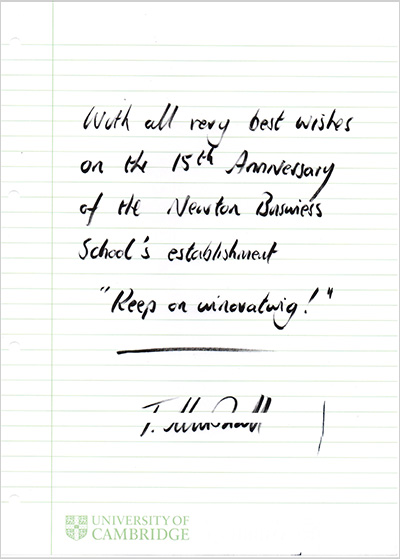 With all very best wishes
on the 15th Anniversary
of the Newton Business
School's establishment
"Keep on innovating!"
T.
UNIVERSITY OF
CAMBRIDGE